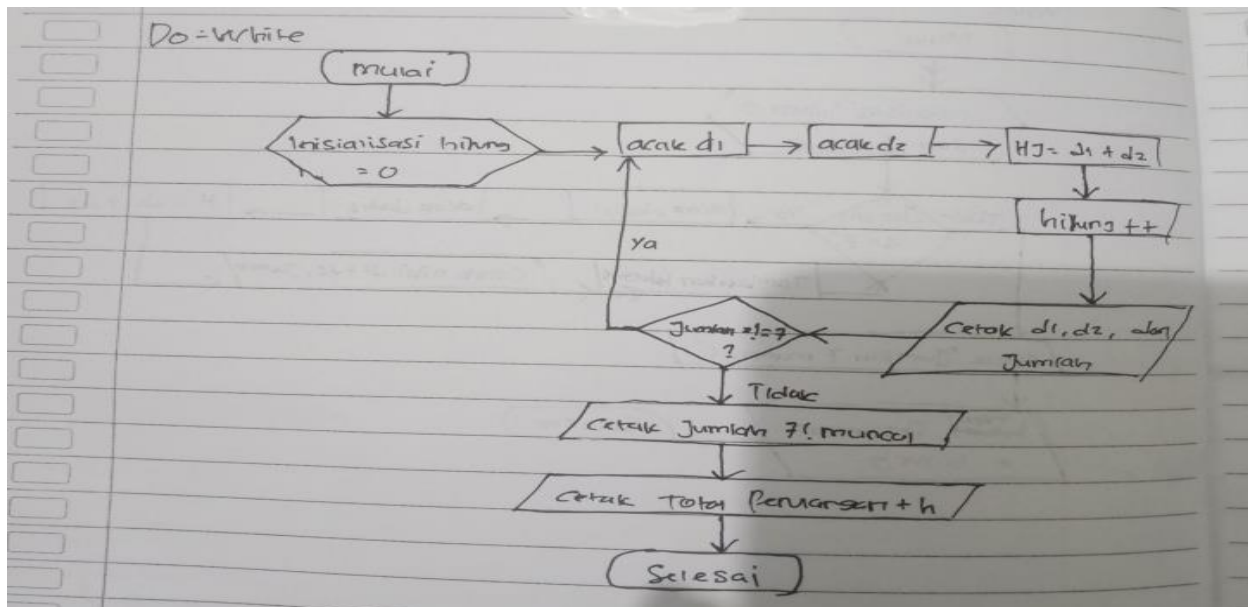 Do-While
mulai
Inisialisasi hitung
= 0
acak d1
acak d2
HJ= d1 + d2
hitung ++
Cetak d1, d2, dan
Jumlah
Jumlah != 7
?
ya
Tidak
Cetak Jumlah 7! muncul
Cetak Total Perulangan + h
Selesai